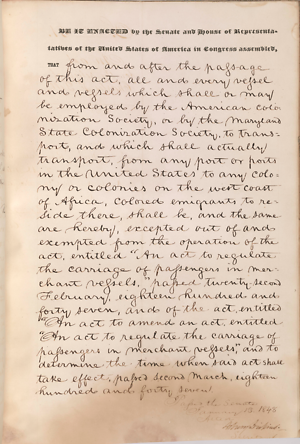 BE IT ENACTED by the Senate and House of Representa-
tatives of the United States of America in Congress assembled,
THAT from and after the passage
of this act, all and every vessel
and vessels which shall or may
be employed by the American colo-
nization Society, or by the Maryland
State Colonization Society, to trans-
port, and which shall actually
transport, from any port or ports
in the United States to any colo-
ny or colonies on the west coast
of Africa, colored emigrants to re-
side there, shall be, and the same
are hereby, excepted out of and
exempted from the operation of the
act, entitled "An act to regulate
the carriage of passengers in mer-
chant vessels," passed twenty-second
February, eighteen hundred and
forty seven, and of the act, entitled
"An act to amend an act, entitled
"An act to regulate the carriage of
passengers in merchant vessels," and to
determine the time when said act shall
take effect, passed second March, eighteen
hundred and forty seven.
1848